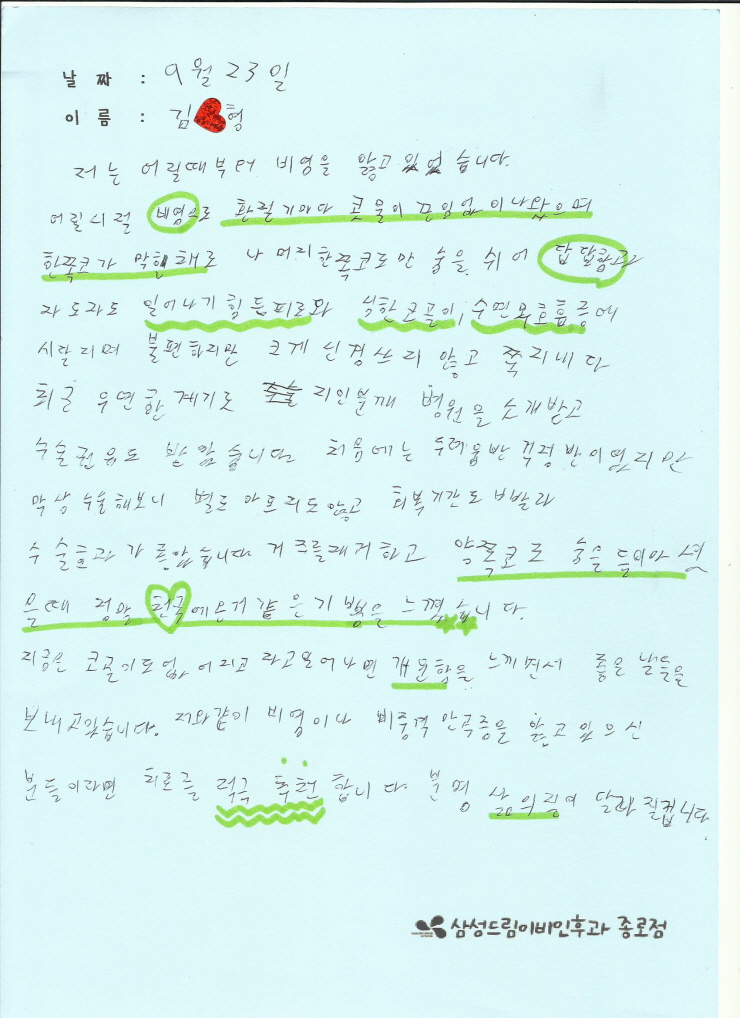 날 짜 : 9월 23일
이 름 : 김 형
저는 어릴때부터 비염을 앓고 있었습니다.
어릴시절 비염으로 환절기마다 콧물이 끈임없이나왔으며
한쪽코가 막힌채로 나머리한쪽코로만 숨을 쉬어 답답함과
자도자도 일어나기힘든피로와 심한코골이, 수면무호흡증에
시달리며 불편하지만 크게 신경쓰지 않고 쭉지내다
최근 우연한 계기로 지인분께 병원을 소개받고
수술권유도 받았습니다 처음에는 두려움반 걱정반이였지만
막상 수술해보니 별로 아프지도않고 회복기간도 빠빨라
수술효과가 좋았습니다 거즈를제거하고 양쪽코로 숨을 들이마셨
을때 정말 천국에온거같은기분을 느꼈습니다.
지금은 코골기도없어지고 자고일어나면 개운함을 느끼면서 좋은 날들을
보내고있습니다. 저와같이 비염이나 비중격만곡증을 앓고 있으신
분들이라면 치료를 적극 추천합니다 분명 삶의질이 달라질겁니다.
삼성드림이비인후과 종로점